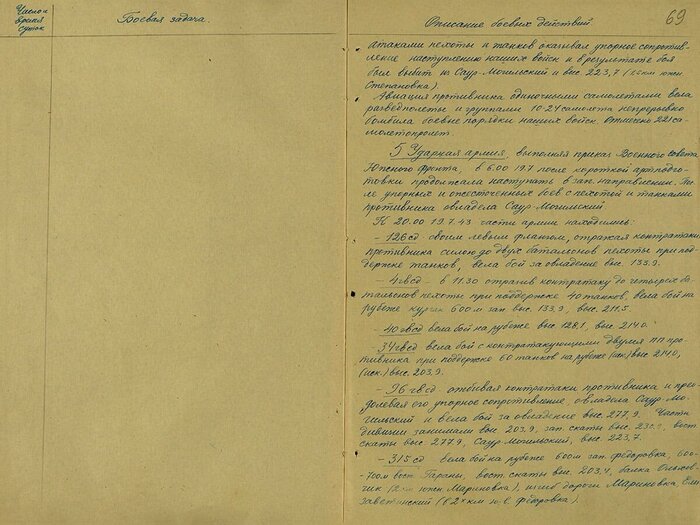 Число и
время
суток
Боевая задача
Описание боевых действий
69
атаками пехоты и танков оказывал упорное сопротив-
ление наступлению наших войск и в результате боя
был выбит из Саур-Могильский и выс. 223,7 южн.
Степановка).
Авиация противника одиночными самолетами вела
разведполеты и группами 10-24 самолета непрерывно
бомбила боевые порядки наших войск. Отмечено 221 са-
молетопролет.
5 Ударная армия, выполняя приказ Военного совета
Южного фронта, в 6.00 19.7 после короткой артподго-
товки продолжала наступать в зап. направлении. Пос-
ле упорных и ожесточенных боев с пехотой и танками
противника овладела Саур-Могильский.
К 20.00 19.7.43 части армии находились:
- 126 сд своим левым флангом, отражая контратаки
противника силою до двух батальонов пехоты при под-
держке танков, вела бой за овладение выс. 133.9.
- 4 гвсд - в 11.30 отразив контратаку до четырех ба-
тальонов пехоты при поддержке 40 танков, вела бой на
рубеже курган 600 м зап. выс. 133,9, выс. 211.5.
- 40 гвсд вела бой на рубеже выс. 128,1, выс. 214.0.
- 34 гвсд вела бой с контратакующими двумя пп про-
тивника при поддержке 60 танков на рубеже (иск.) выс. 214.0,
(иск.) выс. 203,9.
- 96 гвсд отбивая контратаки противника и прео-
долевая его упорное сопротивление, овладела Саур-Мо-
гильский и вела бой за овладение выс. 277.9. Части
дивизии занимали выс. 203,9, зап. скаты выс. вост.
скаты выс. 277,9, Саур-Могильский, выс. 223,7.
- 315 сд вела бой на рубеже 600 м зап. Федоровка, 600-
-700 м вост. Гараны, вост. скаты выс. 203,4, балка Ольхов-
чик южн. Мариновка), изгиб дороги Мариновка, Ели-
заветинский (в 2 км ю.в. Федоровка).